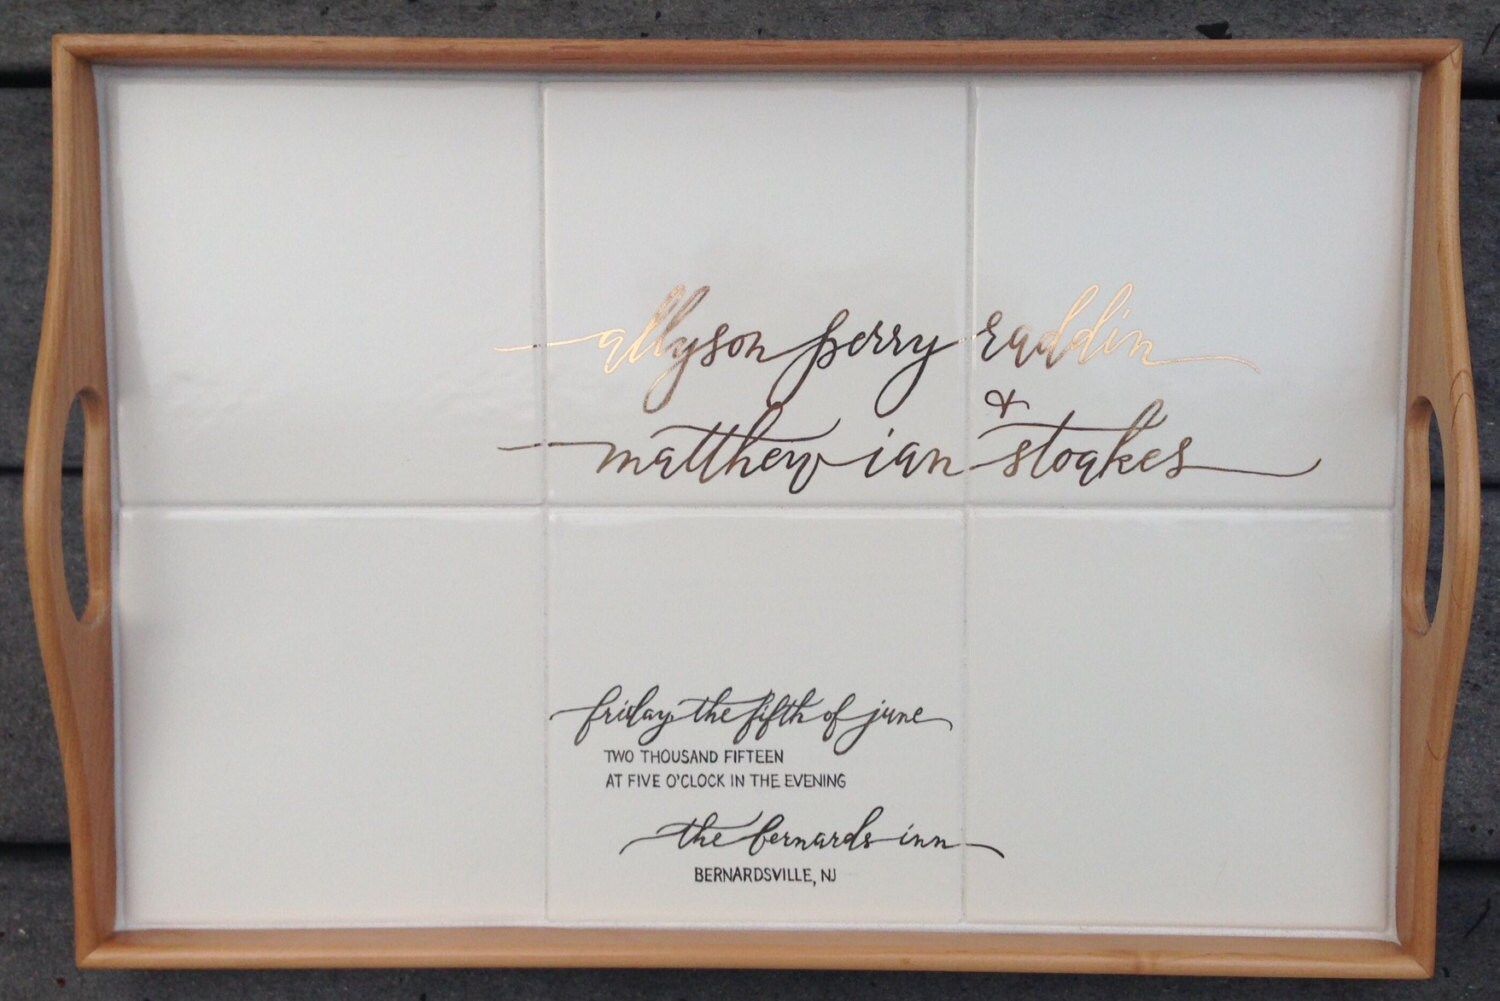 allyson perry raddin
&
matthew ian stoakes
friday, the fifth of june
TWO THOUSAND FIFTEEN
AT FIVE O'CLOCK IN THE EVENING
the bernards inn
BERNARDSVILLE, NJ